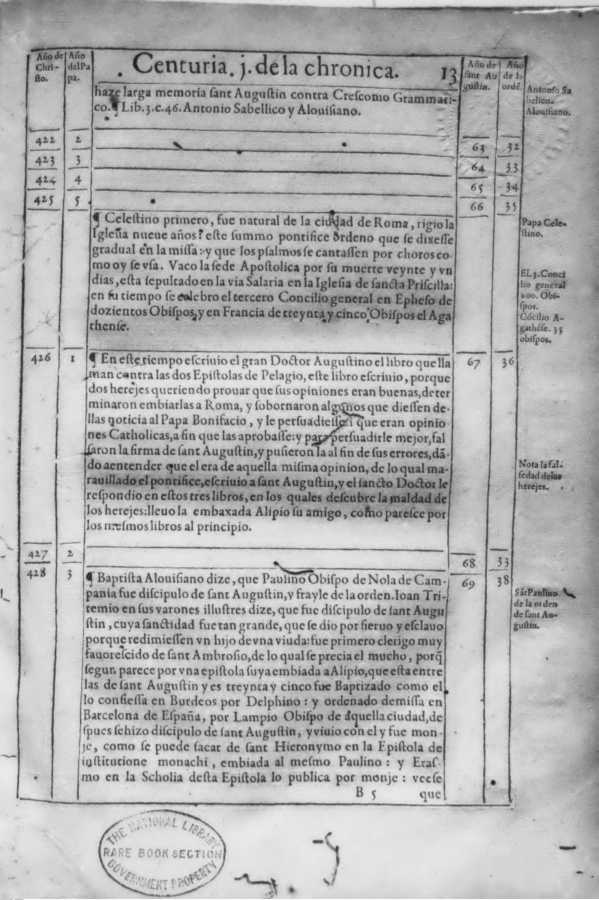 Año de Christo. Año del Papa. Centuria. j. de la chronica. 13 Año de sant Augustin. Año de la ordē.
haze larga memoria sant Augustin contra Cresconio Grammati-
co. ¶ Lib. 3. c. 46. Antonio Sabellico y Alouisiano.
Antonio Sa
belico.
Alouisiano.
422 2 63 32
423 3 64 33
424 4 65 34
425 5 66 35
¶ Celestino primero, fue natural de la ciudad de Roma, rigio la
Iglesia nueue años: este summo pontifice ordeno que se dixesse
gradual en la missa: y que los psalmos se cantassen por choros co
mo oy se vsa. Vaco la sede Apostolica por su muerte veynte y vn
dias, esta sepultado en la via Salaria en la Iglesia de sancta Priscilla:
en su tiempo se celebro el tercero Concilio general en Epheso de
dozientos Obispos, y en Francia de treynta y cinco Obispos el Aga
thense.
Papa Cele-
stino.
El 3. Conci
lio general
200. Obi-
spos.
Cōcilio A-
gathēse. 35
obispos.
426 1 67 36
¶ En este tiempo escriuio el gran Doctor Augustino el libro que lla
man contra las dos Epistolas de Pelagio, este libro escriuio, porque
dos herejes queriendo prouar que sus opiniones eran buenas, deter
minaron embiarlas a Roma, y sobornaron algunos que diessen de-
llas noticia al Papa Bonifacio, y le persuadiessen que eran opinio
nes Catholicas, a fin que las aprobasse: y para persuadirle mejor, fal
saron la firma de sant Augustin, y pusieron la al fin de sus errores, dā-
do a entender que el era de aquella misma opinion, de lo qual ma-
rauillado el pontifice, escriuio a sant Augustin, y el sancto Doctor le
respondio en estos tres libros, en los quales descubre la maldad de
los herejes: lleuo la embaxada Alipio su amigo, como paresce por
los mesmos libros al principio.
Nota la fal-
sedad de los
herejes.
427 2 68 33
428 3 69 38
¶ Baptista Alouisiano dize, que Paulino Obispo de Nola de Cam-
pania fue discipulo de sant Augustin, y frayle de la orden. Ioan Tri-
temio en sus varones illustres dize, que fue discipulo de sant Augu
stin, cuya sanctidad fue tan grande, que se dio por sieruo y esclauo
porque redimiessen vn hijo de vna viuda: fue primero clerigo muy
fauorescido de sant Ambrosio, de lo qual se precia el mucho, porq̄
segun parece por vna epistola suya embiada a Alipio, que esta entre
las de sant Augustin y es treynta y cinco fue Baptizado como el
lo confiessa en Burdeos por Delphino: y ordenado de missa en
Barcelona de España, por Lampio Obispo de aquella ciudad, de
spues se hizo discipulo de sant Augustin, y viuio con el y fue mon-
je, como se puede sacar de sant Hieronymo en la Epistola de
institutione monachi, embiada al mesmo Paulino: y Eras-
mo en la Scholia desta Epistola lo publica por monje: veese
B 5 que
Sāt Paulino
de la orden
de sant Au-
gustin.
THE NATIONAL LIBRARY
RARE BOOK SECTION
GOVERNMENT PROPERTY